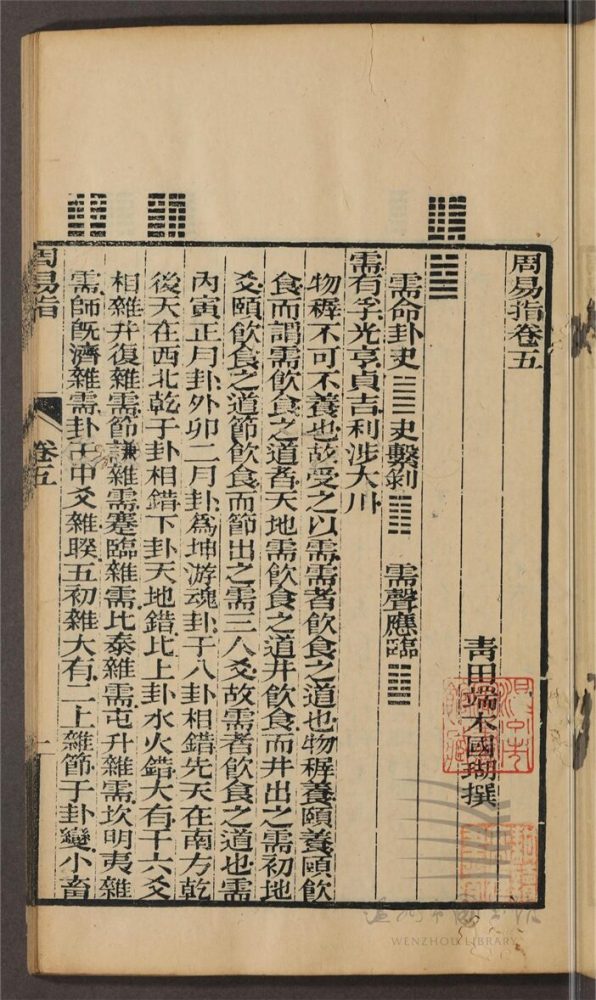 周易指卷五
青田端木國瑚撰
需命卦史 史繫剝 需聲應臨
需有孚光亨貞吉利涉大川
物穉不可不養也故受之以需需者飲食之道也物穉養頤養頤飲
食而謂需飲食之道者天地需飲食之道井飲食而井出之需初地
爻頤飲食之道節飲食而節出之需三人爻故需者飲食之道也需
丙寅正月卦外卯二月卦為坤游魂卦于八卦相錯先天在南方乾
後天在西北乾于卦相錯下卦天地錯比上卦水火錯大有干六爻
相雜井復雜需節謙雜需蹇臨雜需比泰雜需屯升雜需坎明夷雜
需師旣濟雜需卦中爻雜睽五初雜大有二上雜節于卦變小畜
周易指
卷五
一
WENZHOU LIBRARY